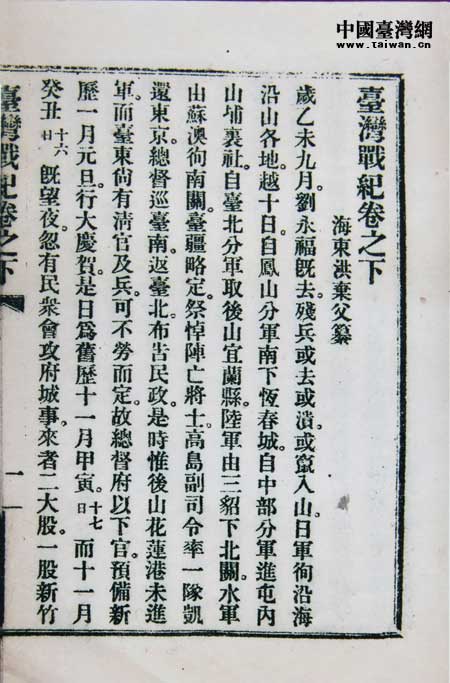 中國臺灣網
www.taiwan.cn
臺灣戰紀卷之下
海東洪棄父纂
歲乙未九月。劉永福既去。殘兵或去或潰。或竄入山。日軍徇沿海
沿山各地。越十日。自鳳山分軍南下恆春城。自中部分軍進屯內
山埔裏社。自臺北分軍取後山宜蘭縣。陸軍由三貂下北關。水軍
由蘇澳徇南關。臺疆略定。祭悼陣亡將士。高島副司令率一隊凱
還東京。總督巡臺南。返臺北。布告民政。是時惟後山花蓮港未進
軍。而臺東尙有清官及兵。可不勞而定。故總督府以下官。預備新
歷一月元旦。行大慶賀。是日爲舊歷十一月甲寅。十七日而十一月
癸丑十六日既望夜。忽有民衆會攻府城事。來者二大股。一股新竹
臺灣戰紀卷之下
一